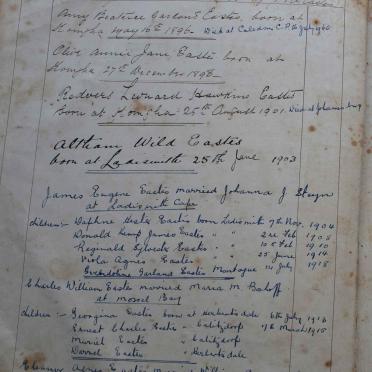 Amy Beatrice Garland Eastes, born at
Komgha May 16th 1896. Died at Caledon C.P.
Olive Annie Jane Eastes born at
Komgha 27th December 1898
Redvers Leonard Hawkins Eastes
born at Komgha 25th August 1901. Died at Johannesburg
Altham Wild Eastes
born at Ladismith 25th June 1903
James Eugene Eastes married Johanna J. Steyn
at Ladismith Cape
children:- Daphne Eastes born Ladismith 7th Nov. 1904
Donald Kemp James Eastes " " 2nd Feb 1908
Reginald Sylvester Eastes " " Feb 1910
Viola Agnes Eastes " " 25 June 1914
Gwendoline Garland Eastes Montague July 1918
Charles William Eastes married Maria M.
at Mossel Bay
children:- Georgina Eastes born at Herbertsdale 6th July 1913
Ernest Charles Eastes " Calitzdorp 7th March 1915
Muriel Eastes " Calitzdorp
Darrel Eastes " Herbertsdale
Eleanor Agnes Eastes married